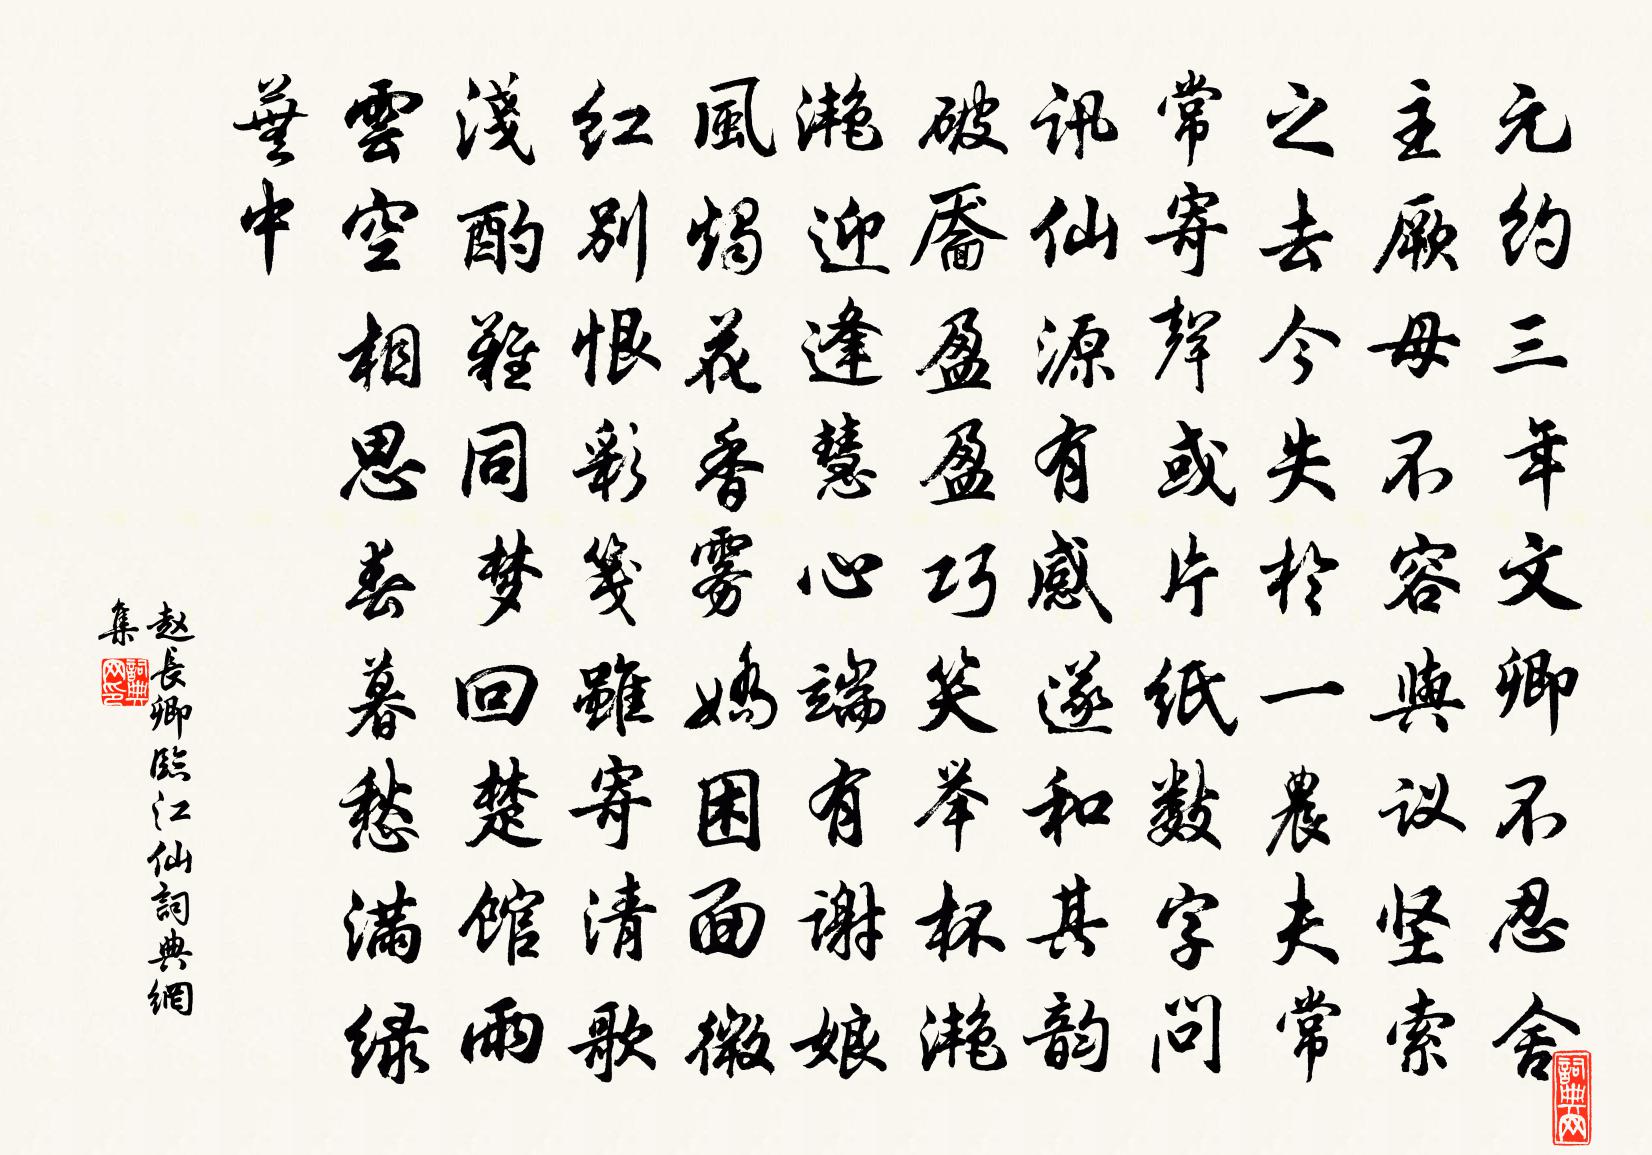 元约三年文卿不忍舍
主厥母不容與议坚索
之去今失於一農夫常
常寄聲或片纸数字问
讯仙源有感遂和其韵
破靥盈盈巧笑举杯滟
滟迎逢慧心端有谢娘
風烛花香雾嬌困面微
红别恨彩笺雖寄清歌
淺酌難同梦回楚馆雨
雲空相思春暮愁满绿
蕪中
赵長卿臨江仙詞典網
集
詞典网
詞典网印